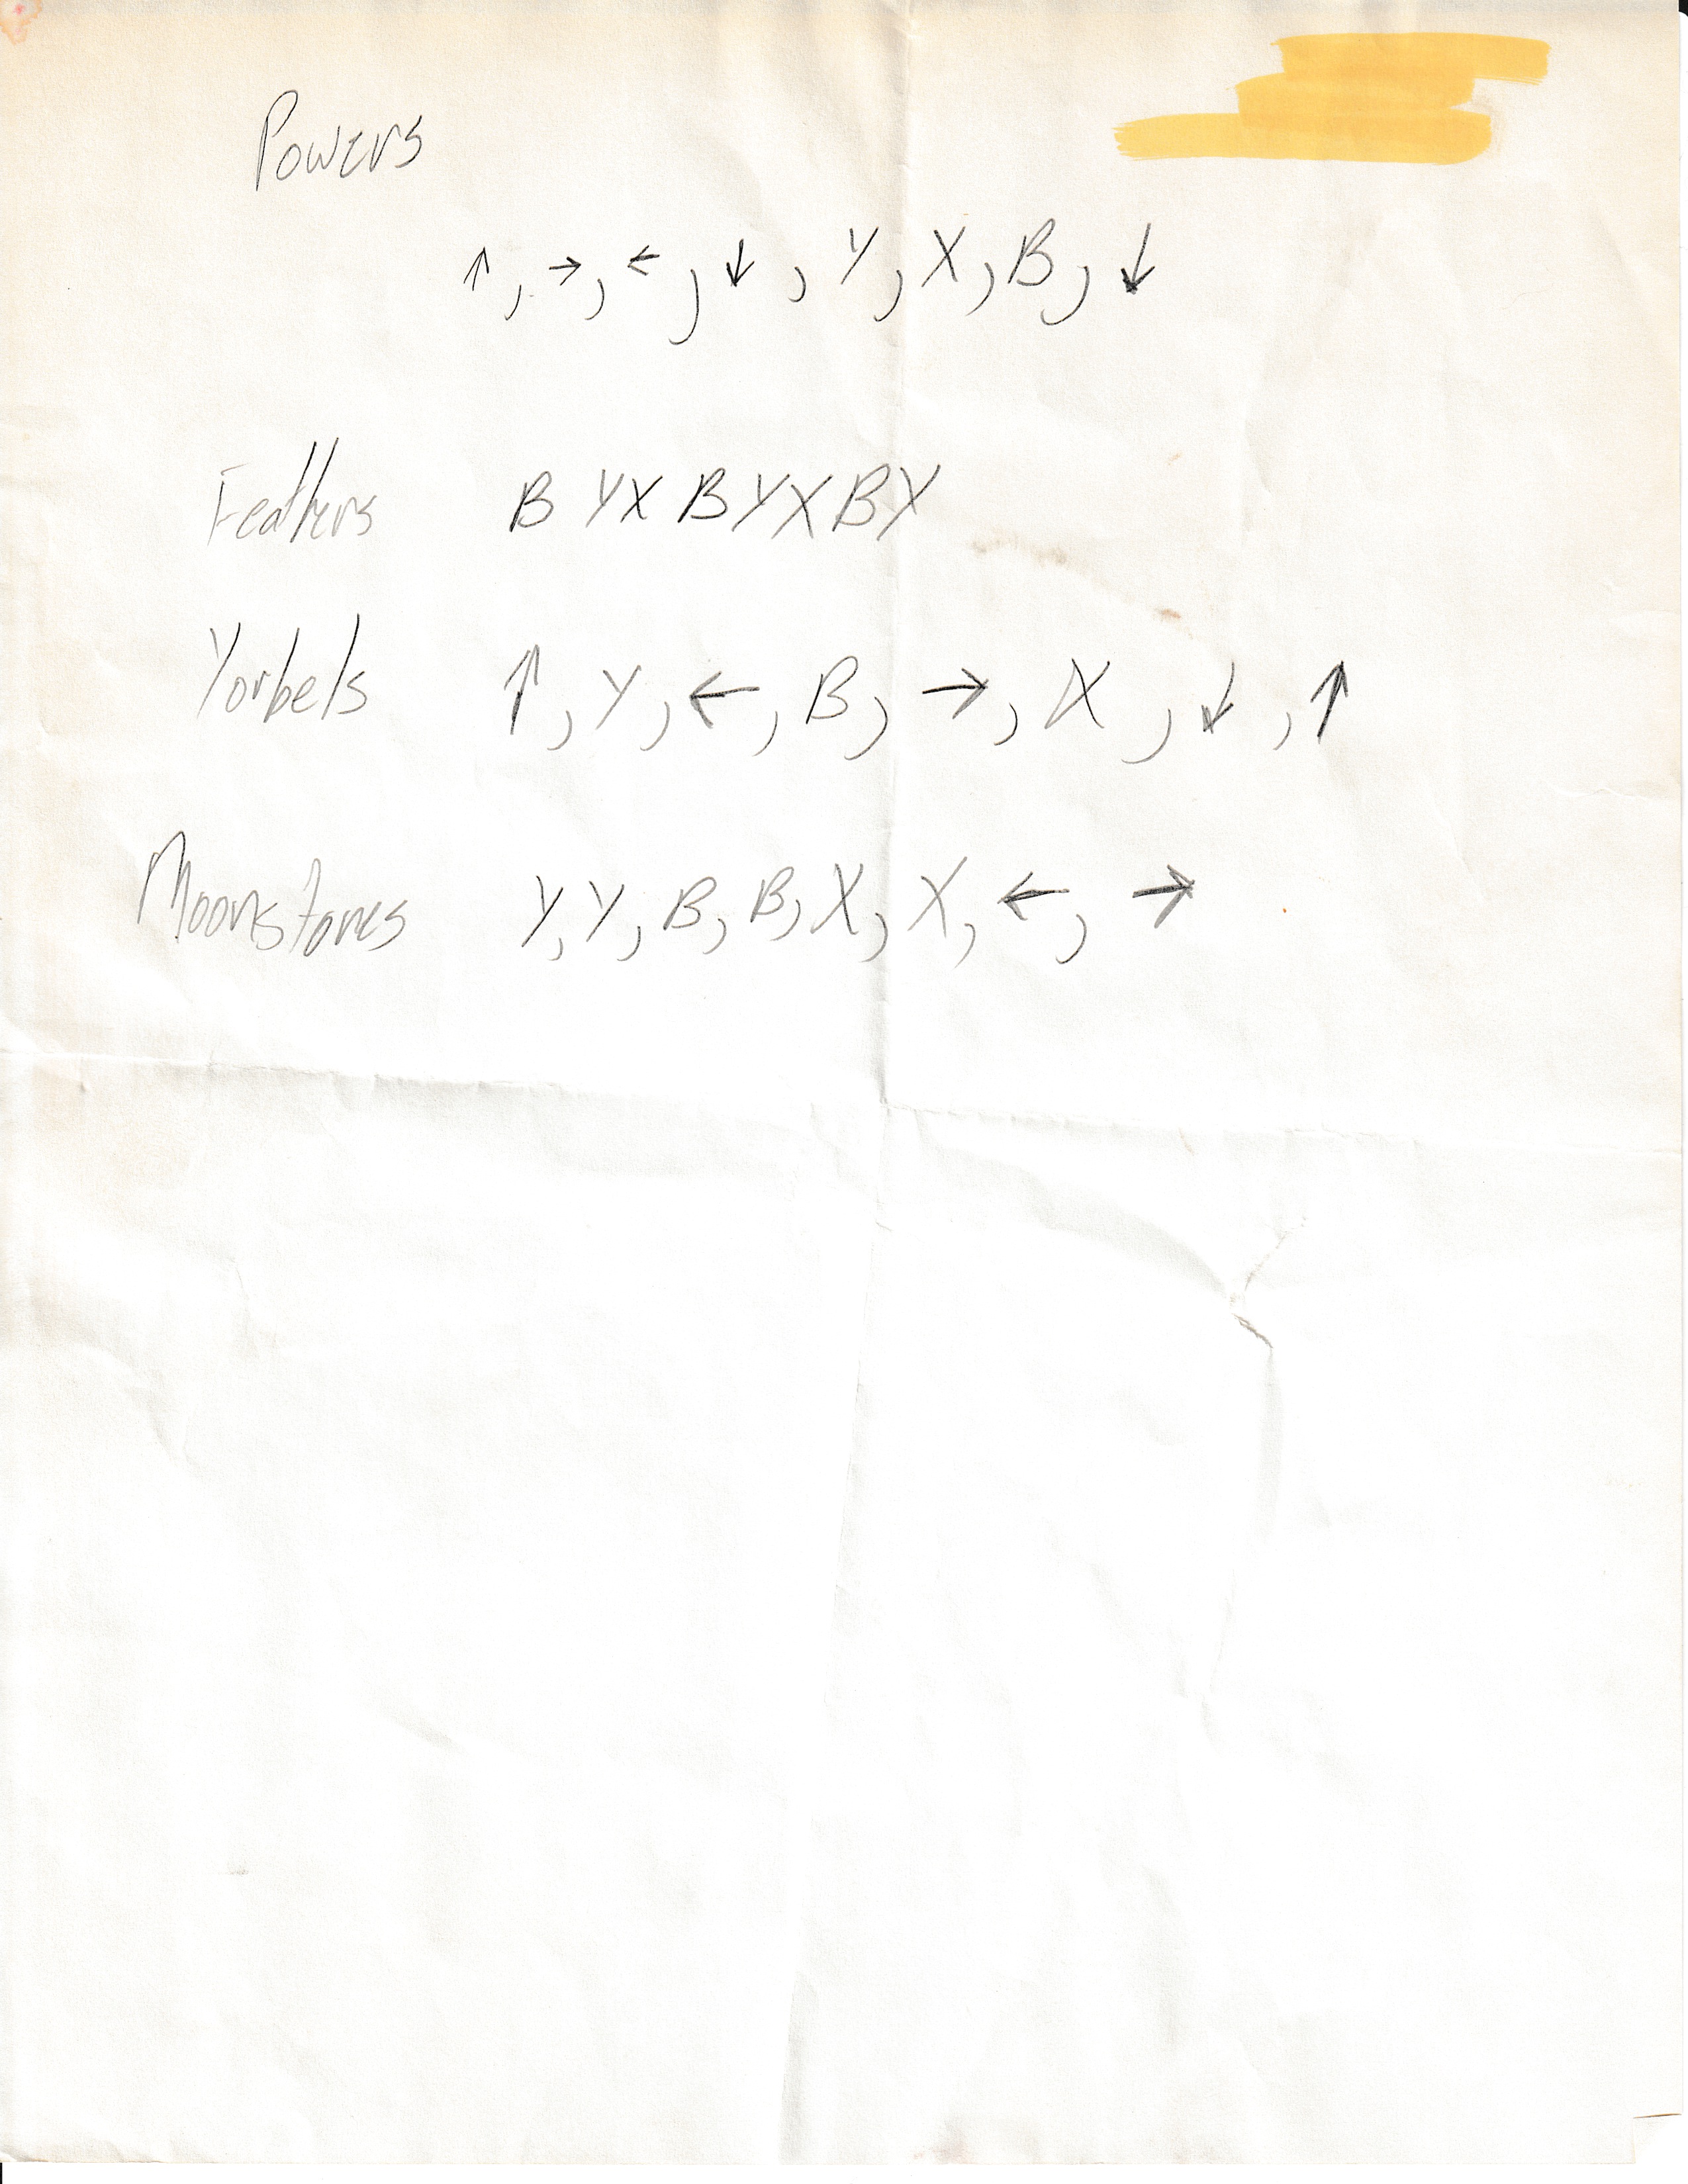 Powers
↑, →, ←, ↓, Y, X, B, ↓
Feathers B Y X B Y X B Y
Yorbels ↑, Y, ←, B, →, X, ↓, ↑
Moonstones Y, Y, B, B, X, X, ←, →